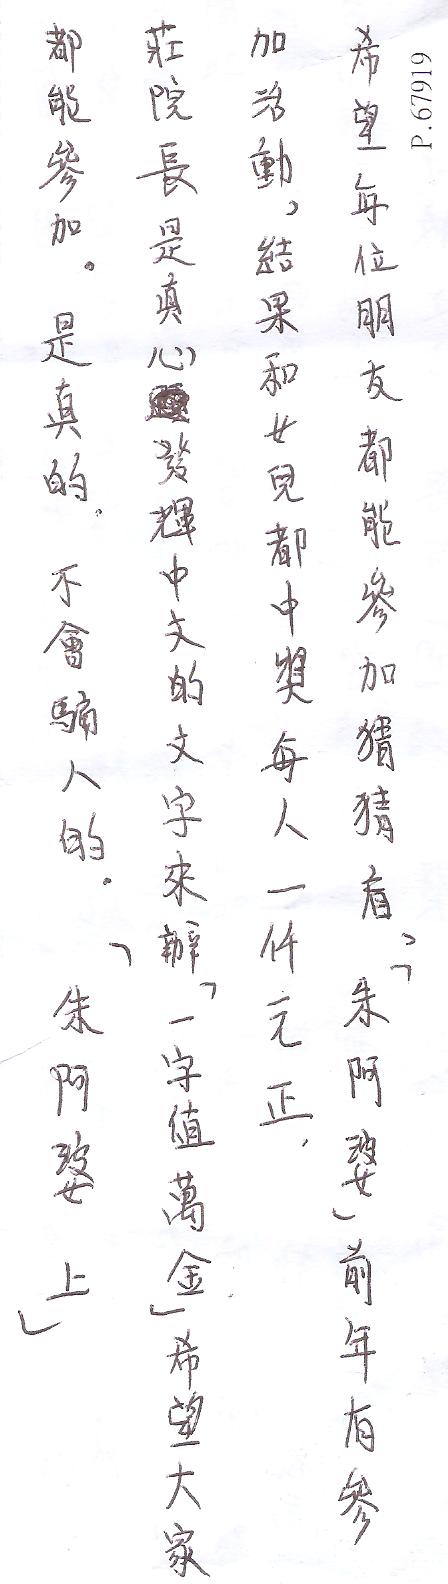 P.67919
希望每位朋友都能參加猜猜看，「朱阿婆」前年有參
加活動，結果和女兒都中獎每人一仟元正，
莊院長是真心發輝中文的文字來辦「一字值萬金」希望大家
都能參加。是真的。不會騙人的。「朱阿婆 上」